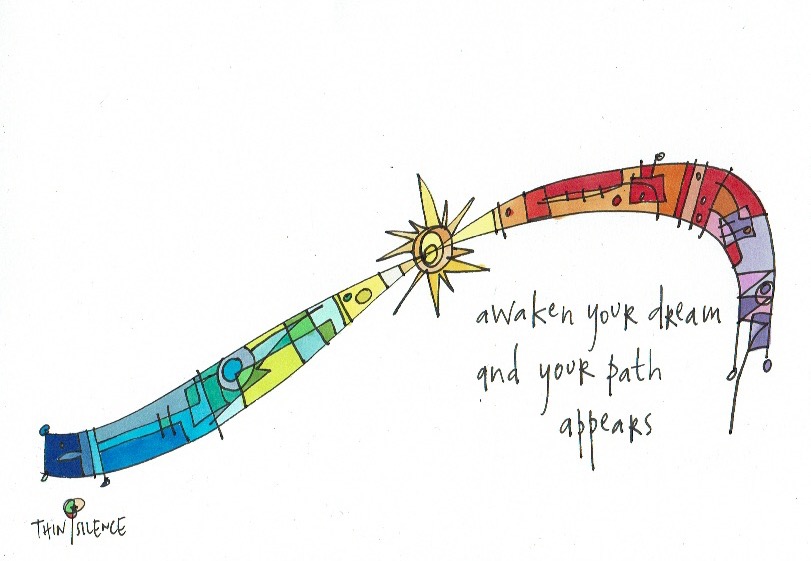 awaken your dream
and your path
appears
THIN SILENCE